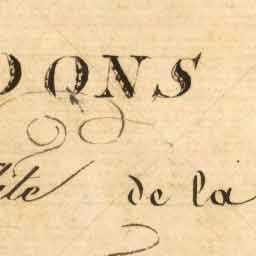 DONS
ite de la